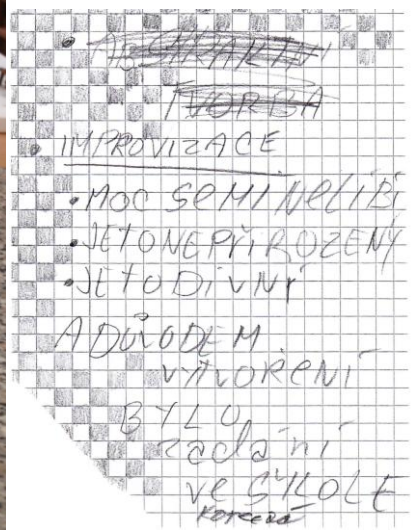 • ABSTRAKTNÍ
TVORBA
• IMPROVIZACE
• MOC SE MI NELÍBÍ
• JE TO NEPŘIROZENÝ
• JE TO DIVNÝ
A DŮVODEM
VYTVOŘENÍ
BYLO
zadání
ve ŠKOLE